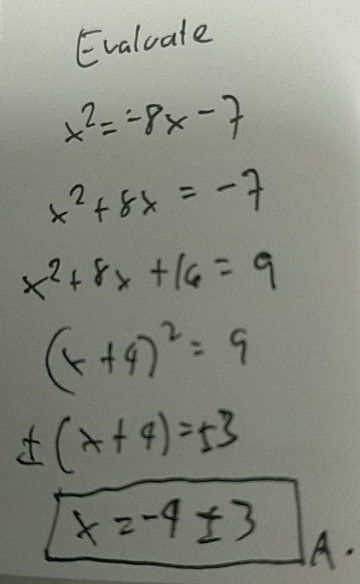 Evaluate
x²=-8x-7
x²+8x = -7
x²+8x+16=9
(x+4)²=9
±(x+4)=±3
x=-4±3 A.